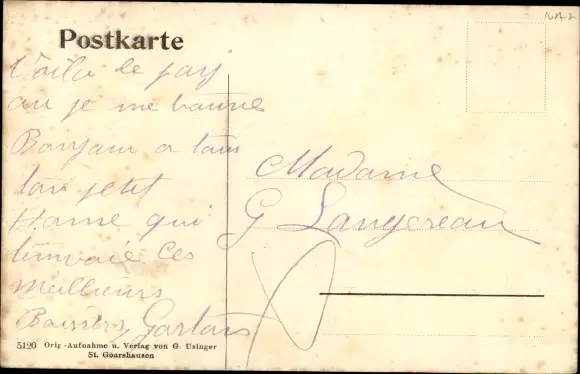 Postkarte
Voila le pays
ou je me trouve
Bonjour a tous
ton petit
Home qui
t'envoie Ces
meilleurs
Baisers Gaston
Madame
G Langereau
5120 Orig-Aufnahme u. Verlag von G. Usinger
St. Goarshausen